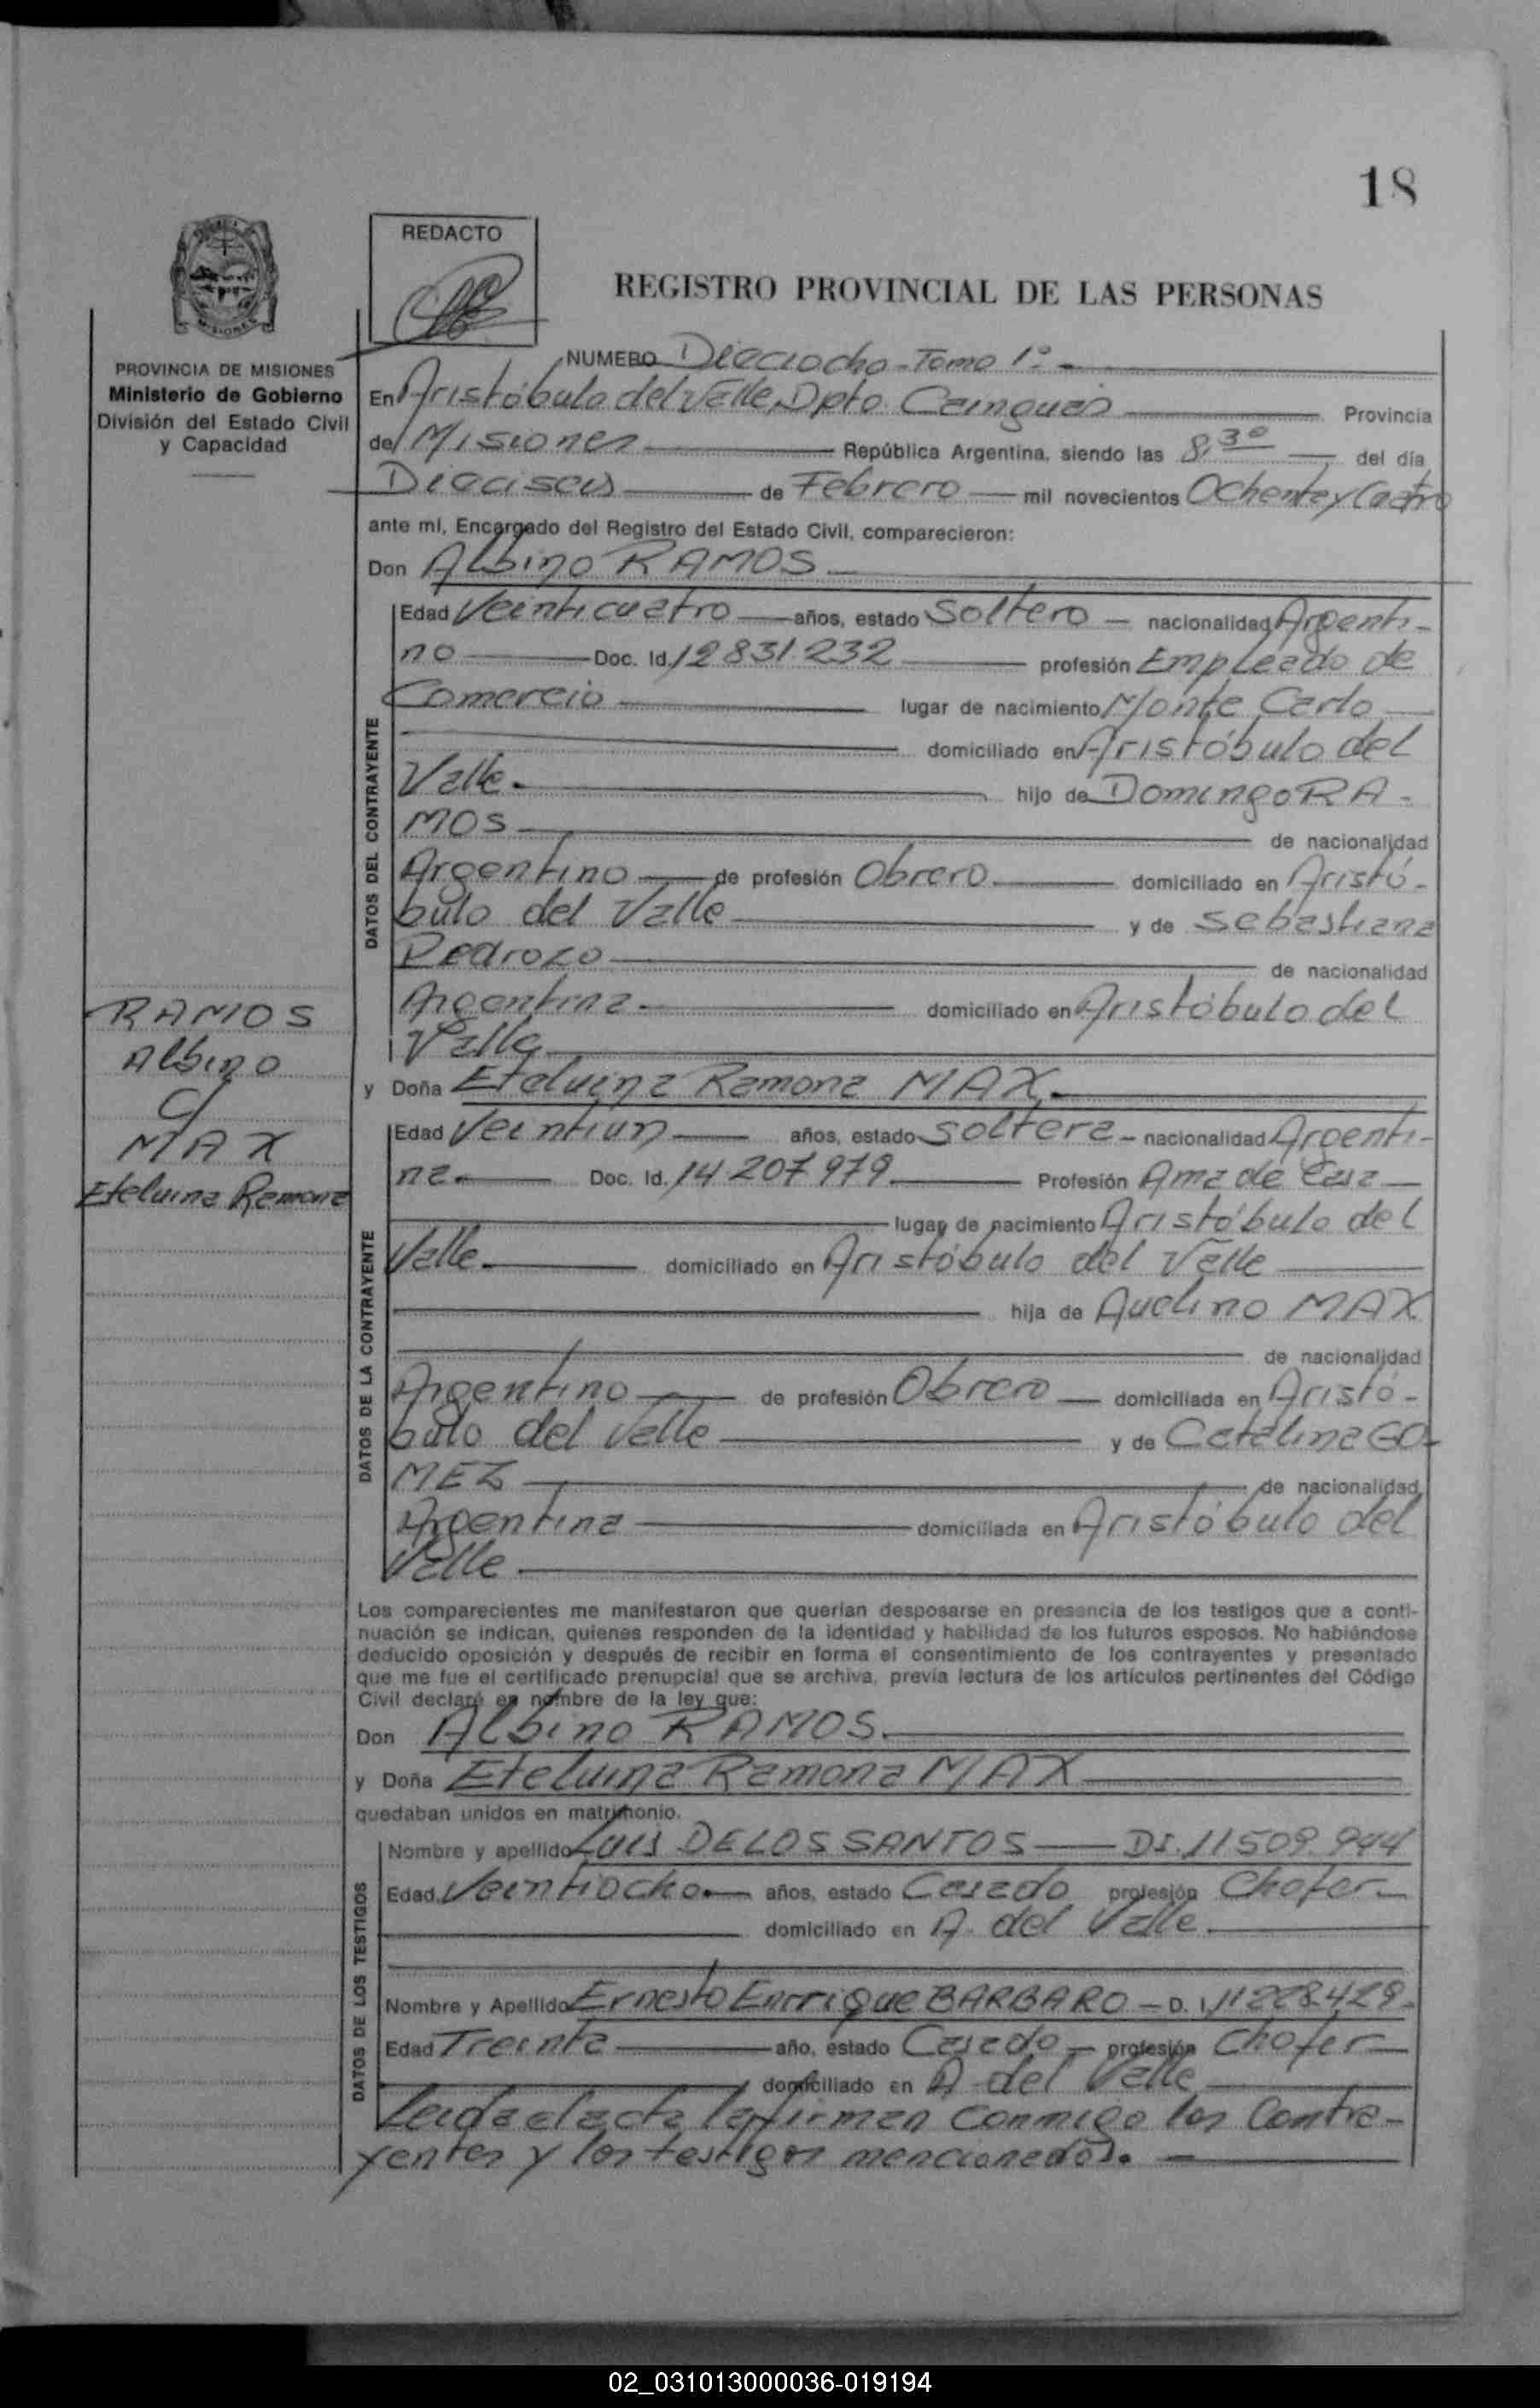 18
REDACTO
REGISTRO PROVINCIAL DE LAS PERSONAS
MISIONES
PROVINCIA DE MISIONES
Ministerio de Gobierno
División del Estado Civil
y Capacidad
NUMERO Dieciocho - Tomo 1º -
En Aristóbulo del Valle, Dpto. Cainguás Provincia
de Misiones República Argentina, siendo las 8,30 del día
Dieciseis de Febrero mil novecientos Ochenta y Cuatro
ante mí, Encargado del Registro del Estado Civil, comparecieron:
Don Albino RAMOS
DATOS DEL CONTRAYENTE
Edad Veinticuatro años, estado Soltero - nacionalidad Argenti-
no Doc. Id. 12831232 profesión Empleado de
Comercio lugar de nacimiento Monte Carlo
domiciliado en Aristóbulo del
Valle. hijo de Domingo RA-
MOS de nacionalidad
Argentino de profesión Obrero. domiciliado en Aristó-
bulo del Valle y de Sebastiana
Pedrozo de nacionalidad
Argentina. domiciliado en Aristóbulo del
Valle
RAMOS
Albino
C/
MAX
Etelvina Ramona
y Doña Etelvina Ramona MAX.
DATOS DE LA CONTRAYENTE
Edad Veintiun años, estado Soltera - nacionalidad Argenti-
na. Doc. Id. 14 207 979 Profesión Ama de Casa
lugar de nacimiento Aristóbulo del
Valle. domiciliado en Aristóbulo del Valle
hija de Avelino MAX
de nacionalidad
Argentino de profesión Obrero domiciliada en Aristó-
bulo del Valle y de Catalina GO-
MEZ de nacionalidad
Argentina domiciliada en Aristóbulo del
Valle
Los comparecientes me manifestaron que querían desposarse en presencia de los testigos que a conti-
nuación se indican, quienes responden de la identidad y habilidad de los futuros esposos. No habiéndose
deducido oposición y después de recibir en forma el consentimiento de los contrayentes y presentado
que me fue el certificado prenupcial que se archiva, previa lectura de los artículos pertinentes del Código
Civil declaré en nombre de la ley que:
Don Albino RAMOS.
y Doña Etelvina Ramona MAX
quedaban unidos en matrimonio.
DATOS DE LOS TESTIGOS
Nombre y apellido Luis DE LOS SANTOS D.I. 11509.944
Edad Veintiocho. años, estado Casado profesión Chofer
domiciliado en A. del Valle.
Nombre y Apellido Ernesto Enrrique BARBARO - D. I. 11228429.
Edad Treinta año, estado Casado - profesión Chofer
domiciliado en A. del Valle
Leida el acta la firman conmigo los Contra-
yentes y los testigos mencionados. -
02_031013000036-019194